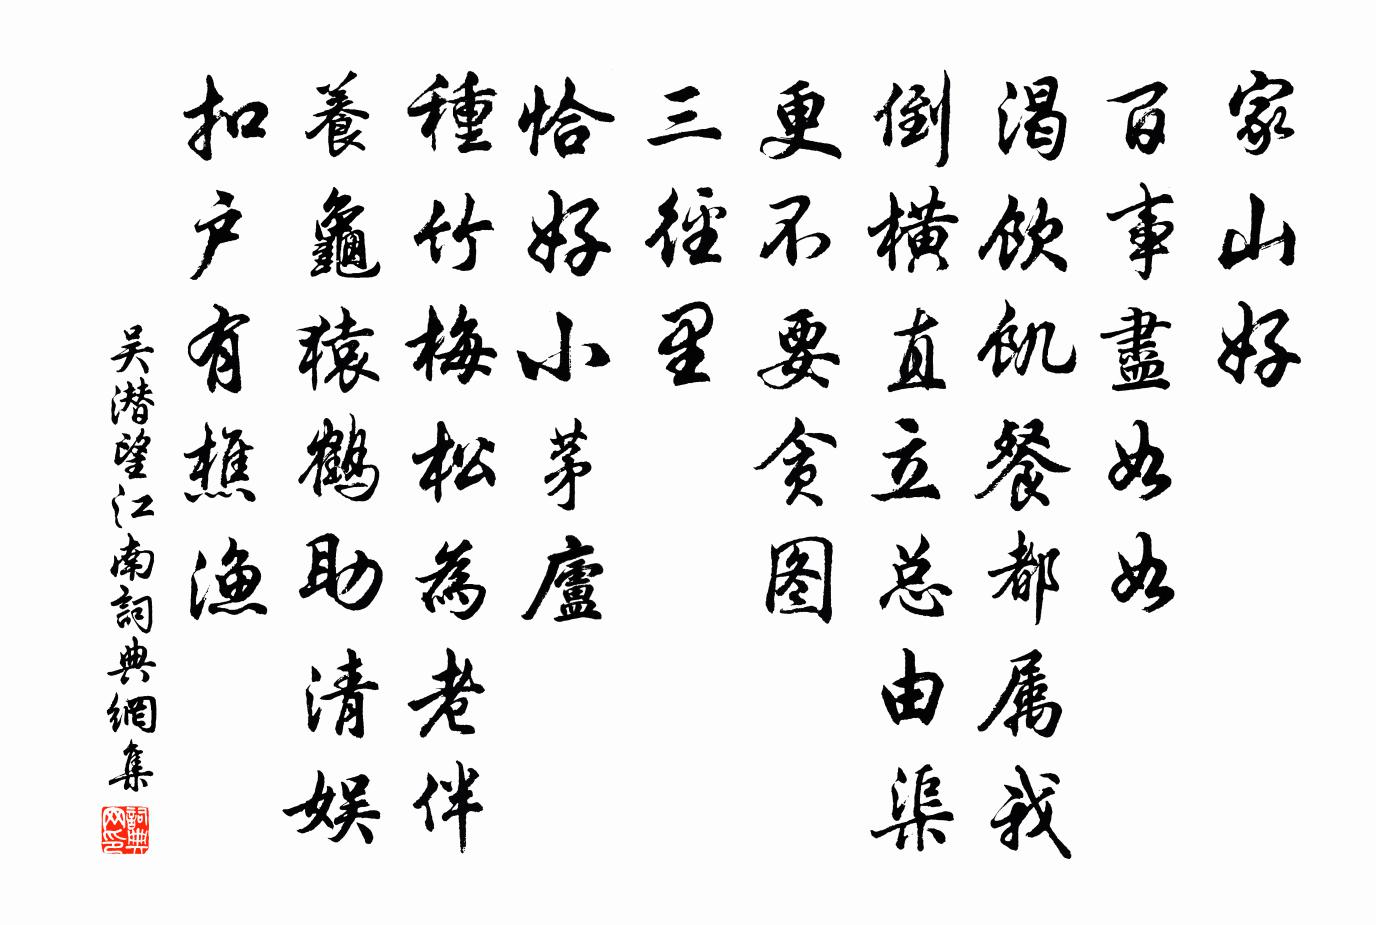 家山好
百事盡如如
渴飲飢餐都属我
倒橫直立总由渠
更不要贪图
三徑里
恰好小茅廬
種竹梅松為老伴
養龜猿鶴助清娛
扣户有樵漁
吴潜望江南詞典網集
詞典網印